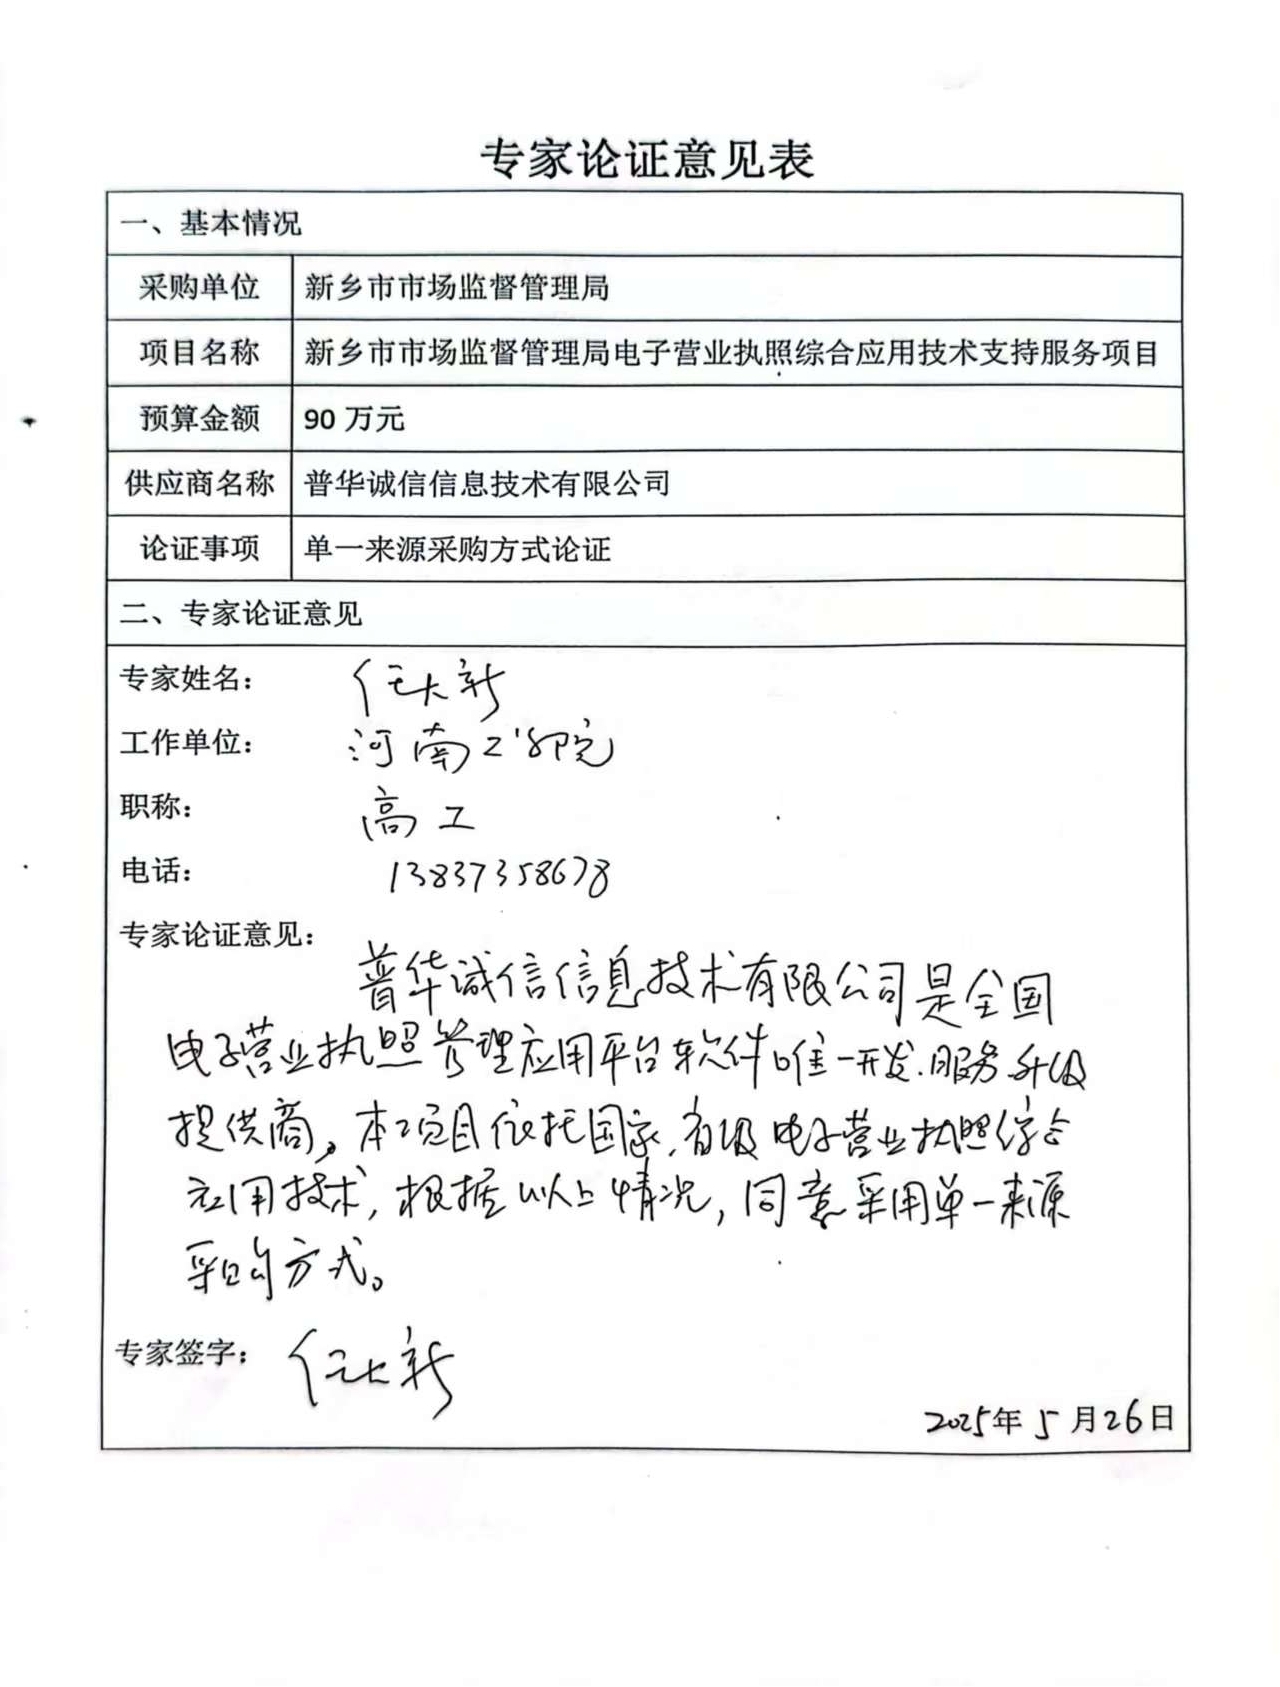 专家论证意见表
一、基本情况
采购单位 新乡市市场监督管理局
项目名称 新乡市市场监督管理局电子营业执照综合应用技术支持服务项目
预算金额 90 万元
供应商名称 普华诚信信息技术有限公司
论证事项 单一来源采购方式论证
二、专家论证意见
专家姓名： 任大新
工作单位： 河南工学院
职称： 高工
电话： 13837358678
专家论证意见：
普华诚信信息技术有限公司是全国
电子营业执照管理应用平台软件唯一开发、服务、升级
提供商。本项目依托国家、省级电子营业执照综合
应用技术，根据以上情况，同意采用单一来源
采购方式。
专家签字： 任大新
2025年 5 月 26 日